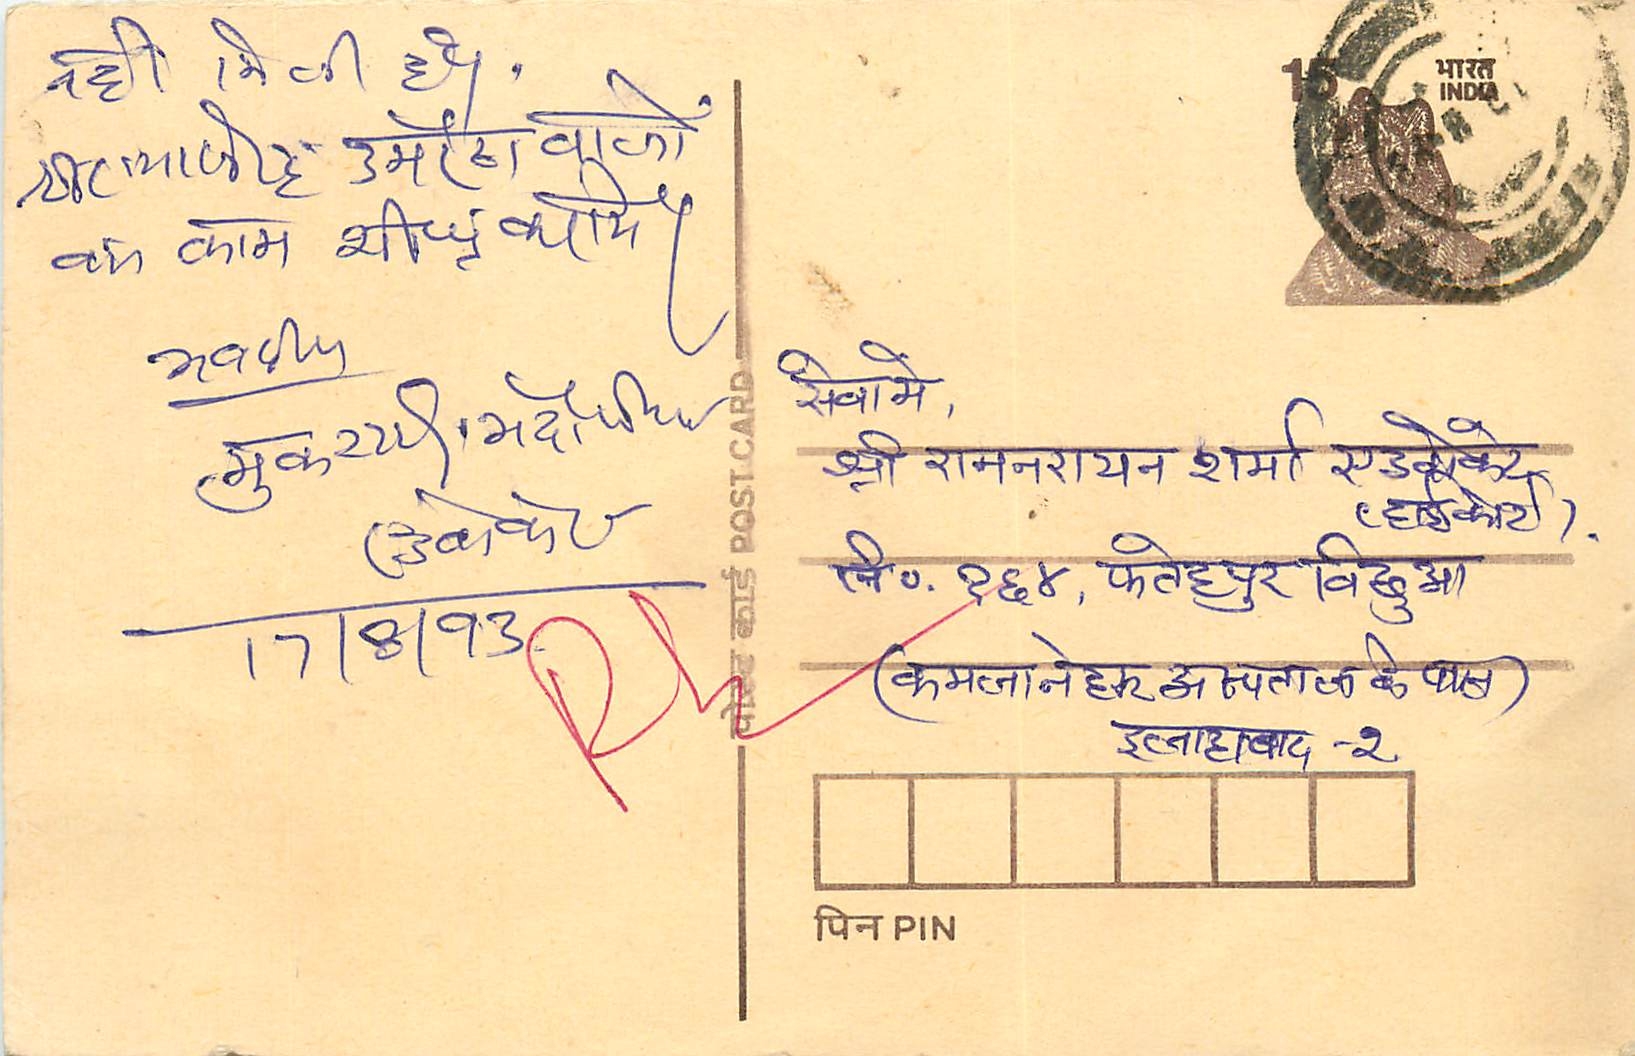 नहीं मिली है।
उमेश वालों
का काम शीघ्र करायें
भवदीय
एडवोकेट
17/8/93
15
भारत
INDIA
पोस्ट कार्ड POST CARD
सेवामे,
श्री रामनरायन शर्मा एडवोकेट
(हाईकोर्ट).
नि०. १६४, फतेहपुर विछुआ
(कमला नेहरू अस्पताल के पास)
इलाहाबाद -२
पिन PIN